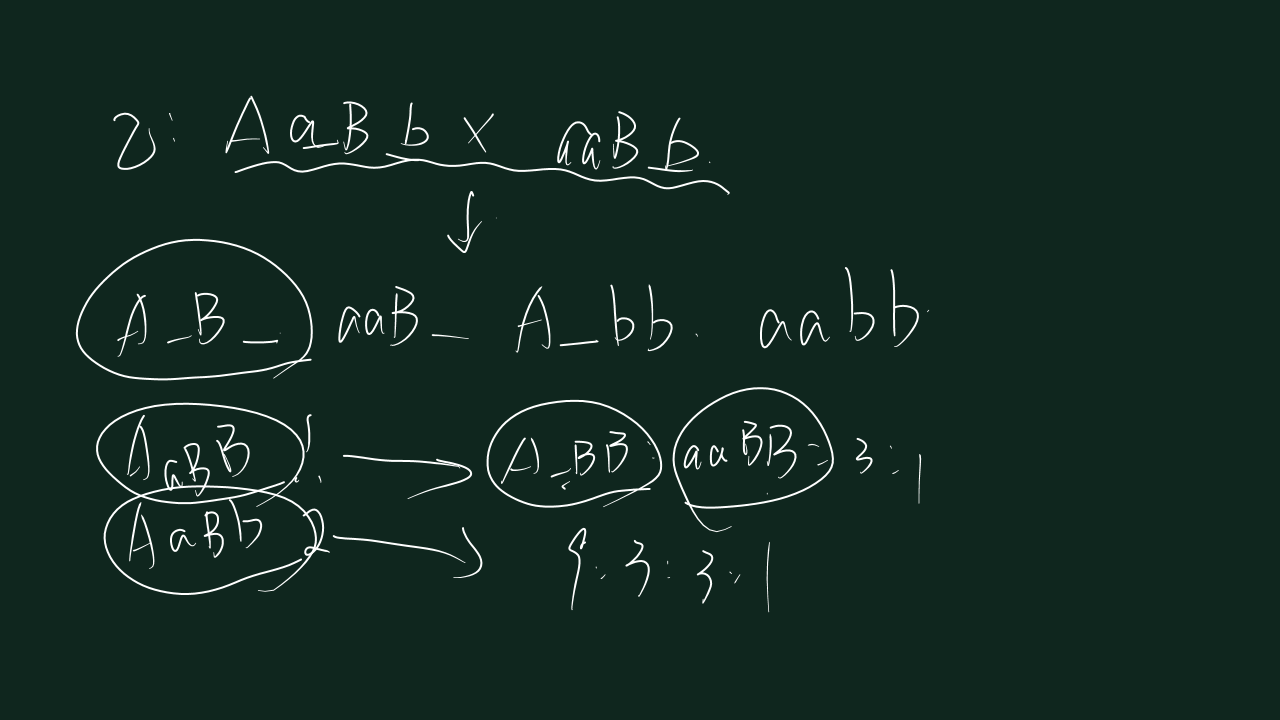 2: AaBb × aaBb.
↓
A_B_ aaB_ A_bb. aabb.
AaBB 1. → A_BB: aaBB = 3:1
AaBb 2 → 9:3:3:1